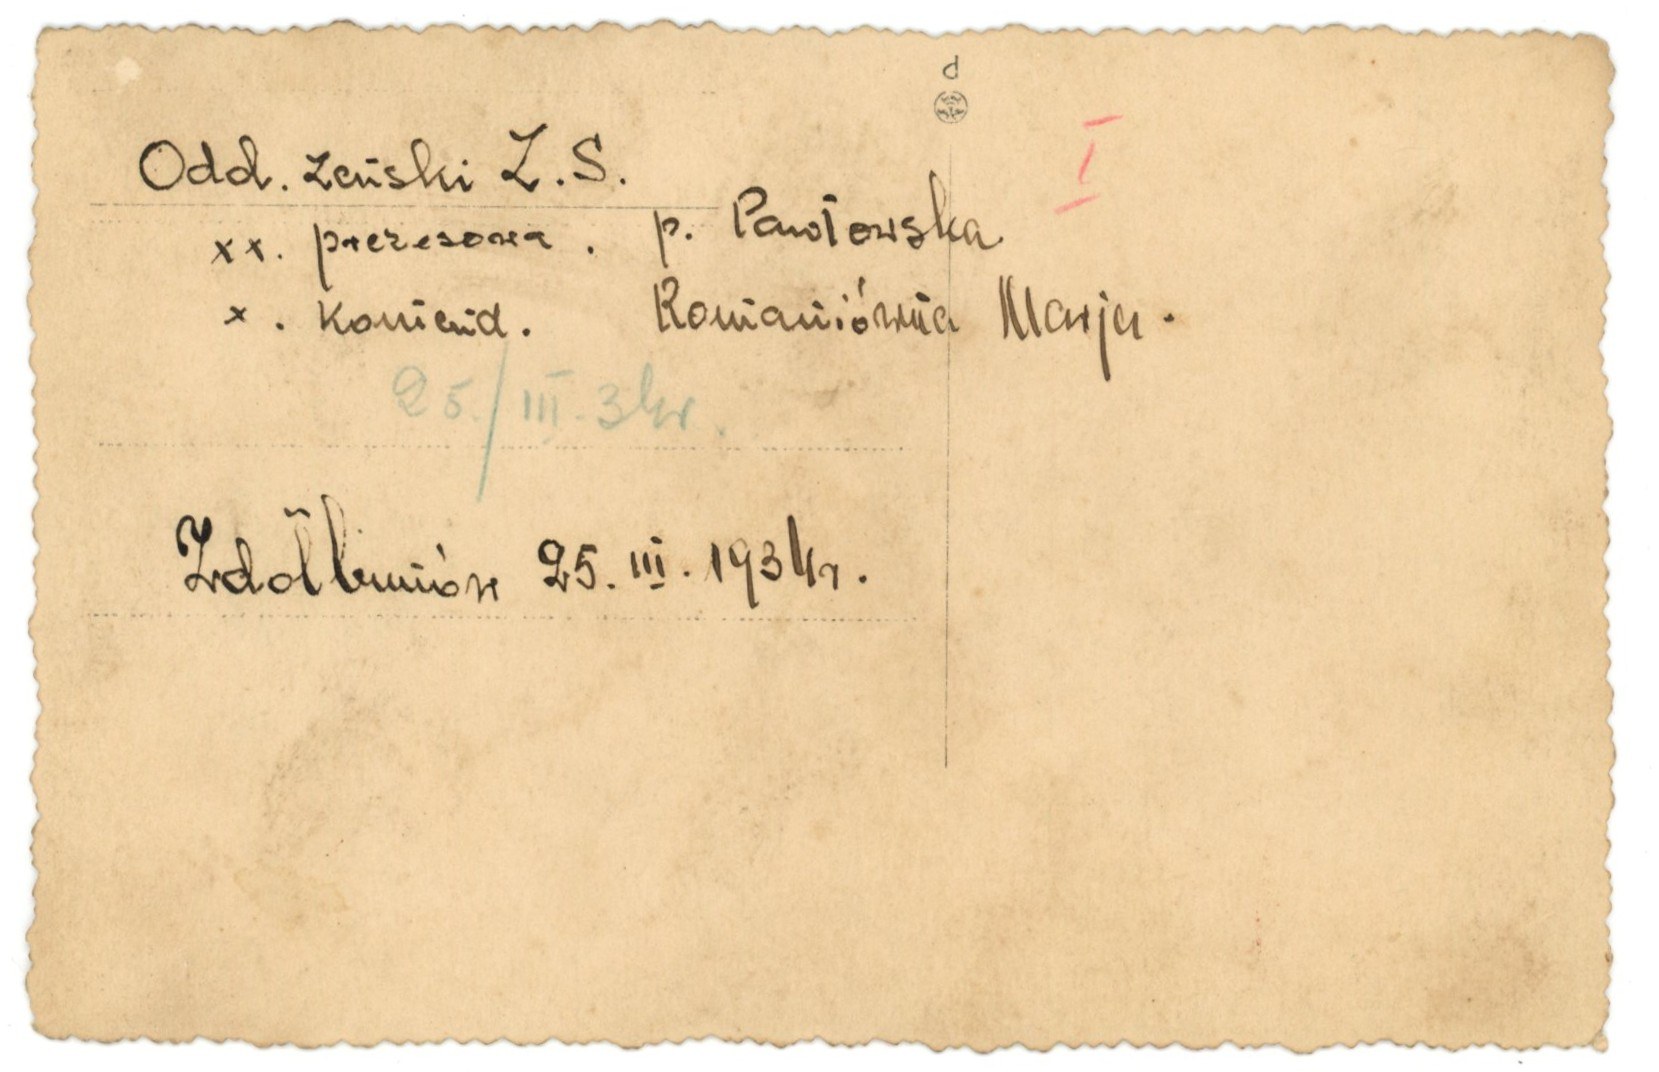 d
I
Odd. żeński Z.S.
xx. prezesowa. p. Pawłowska
x. Komend. Romaniówna Marja.
25./III.34r.
Zdołbunów 25.III.1934r.